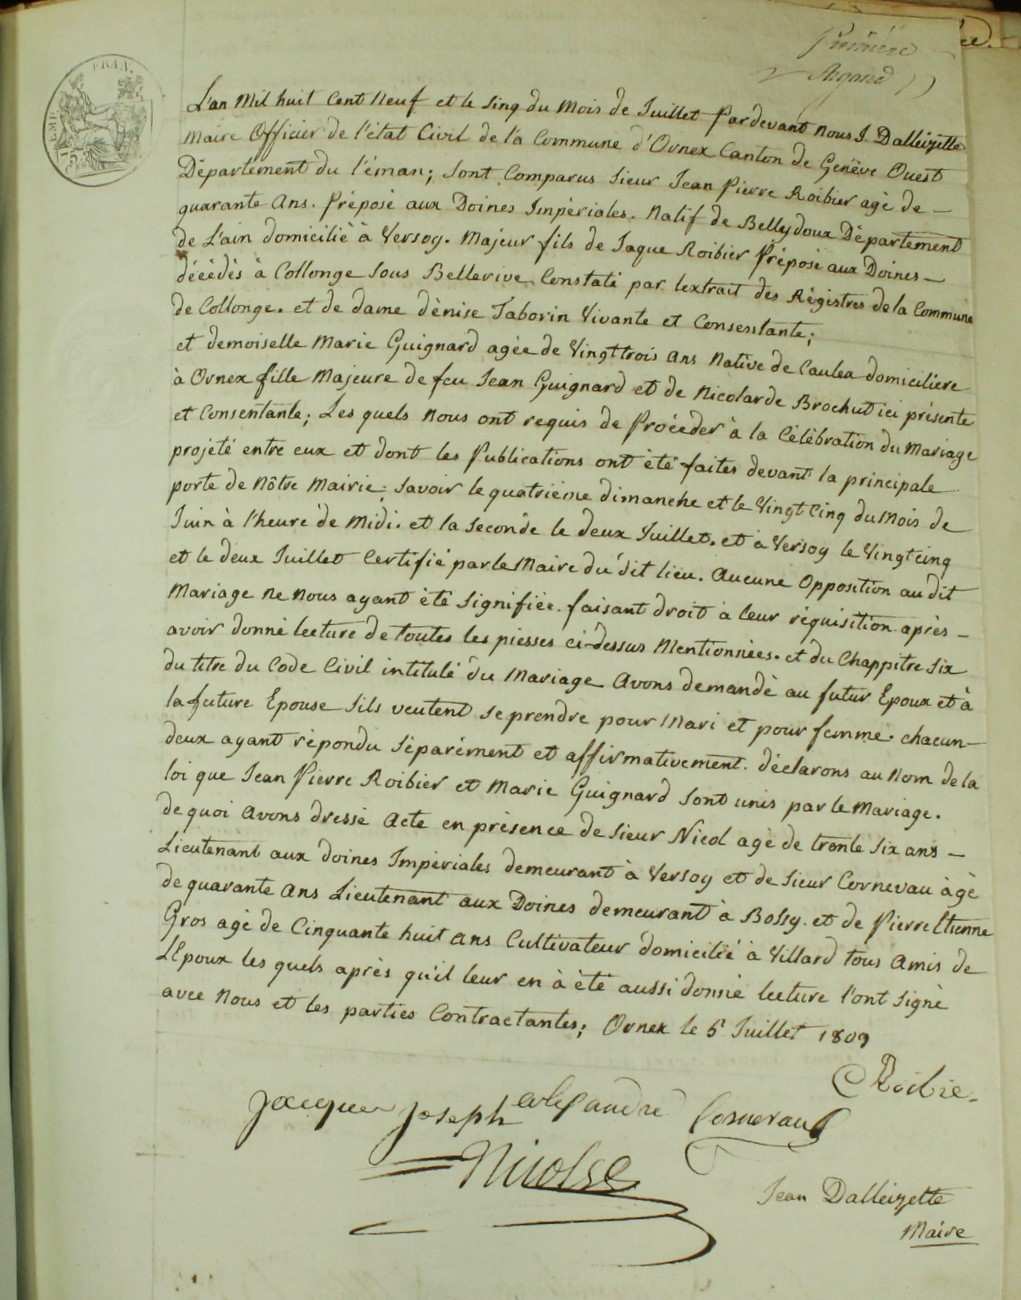 L'an Mil huit Cent Neuf et le sinq du Mois de Juillet Pardevant Nous J. Dalleizette
Maire Officier de l'état Civil de la Commune d'Ornex Canton de Genève Ouest
Département du l'éman; sont Comparus Sieur Jean Pierre Roibier agé de —
quarante Ans. Préposé aux Doines Impériales. Natif de Bellydoux Département
de L'ain domicilié à Versoy. Majeur fils de Jaque Roibier Préposé aux Doines —
décédés à Collonge sous Bellerive, Constaté par lextrait des Régistres de la Commune
de Collonge. et de dame dénise Taborin Vivante et Consentante;
et demoiselle Marie Guignard agée de Vingt trois ans Native de Caulea domiciliére
à Ornex fille Majeure de feu Jean Guignard et de Nicolarde Brochut ici présente
et Consentante; Les quels Nous ont requis de Procéder à la Célébration du Mariage
projeté entre eux et dont les Publications ont été faites devant la principale
porte de Nôtre Mairie; savoir le quatriéme dimanche et le Vingt Cinq du Mois de
Juin à l'heure de Midi. et la seconde le deux Juillet. et à Versoy le Vingt cinq
et le deux Juillet Certifié par le Maire du dit lieu. Aucune Opposition au dit
Mariage Ne Nous ayant été signifiée. faisant droit à leur réquisition après —
avoir donné lecture de toutes les piesses ci-dessus Mentionnées. et du Chappitre six
du titre du Code Civil intitulé du Mariage Avons demandé au futur Epoux et à
la future Epouse sils veulent se prendre pour Mari et pour femme. chacun —
deux ayant répondu séparément et affirmativement. déclarons au Nom de la
loi que Jean Pierre Roibier et Marie Guignard sont unis par le Mariage.
de quoi Avons dressé Acte en présence de Sieur Nicol agé de trente six ans —
Lieutenant aux doines Impériales demeurant à Versoy et de Sieur Cornevau àgé
de quarante Ans Lieutenant aux Doines demeurant à Bossy. et de Pierre Etienne
Gros agé de Cinquante huit ans Cultivateur domicilié à Villard tous Amis de
LEpoux les quels après qu'il leur en à été aussi donné lecture l'ont signé
avec Nous et les parties Contractantes; Ornex le 5 Juillet 1809
Roibie
Jacques Joseph alexandre Cornevaux
Nicolse
Jean Dalleizette
Maire